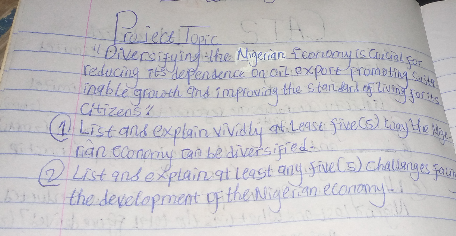 Project Topic
"Diversifying the Nigerian Economy is Crucial for
reducing its dependence on oil export promoting sustai
inable growth and improving the standard of living for its
Citizens"
(1) List and explain vividly at Least five(5) way the Nige
rian economy can be diversified.
(2) List and explain at least any five(5) challenges facing
the development of the Nigerian economy.